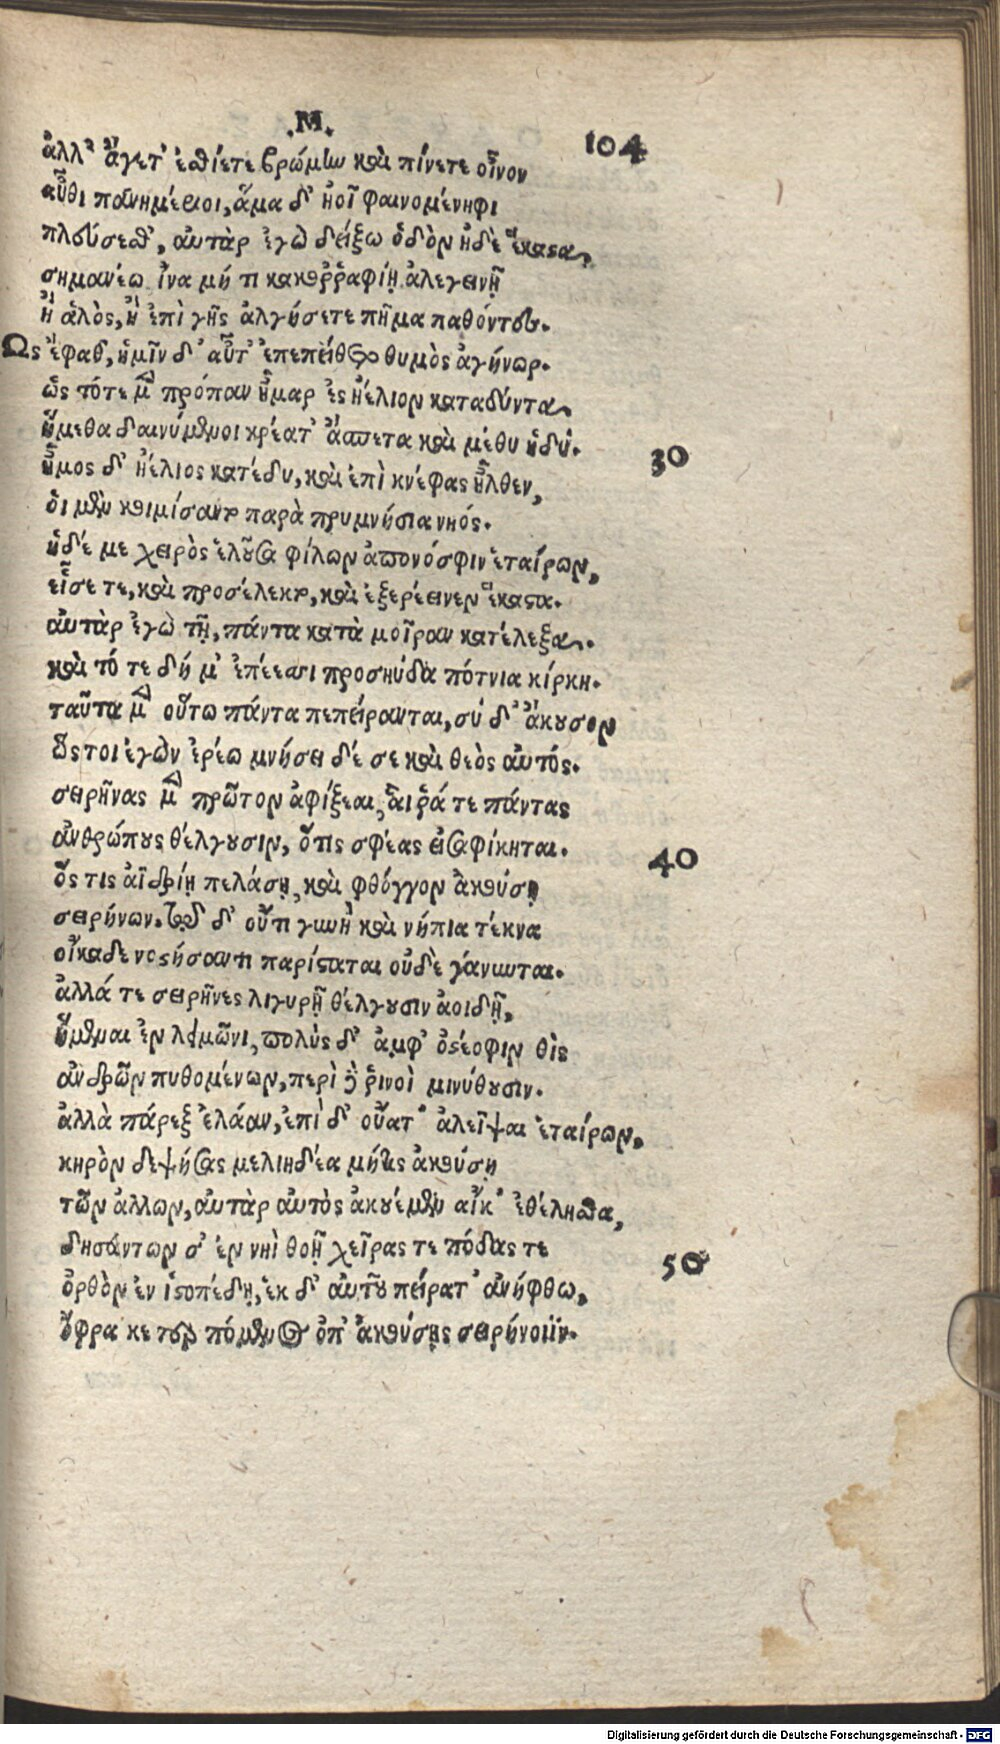 .Μ.
104
ἀλλ' ἄγετ' ἐσθίετε βρώμην καὶ πίνετε οἶνον
αὖθι πανημέριοι, ἅμα δ' ἠοῖ φαινομένηφι
πλεύσεσθ', αὐτὰρ ἐγὼ δείξω ὁδὸν ἠδὲ ἕκαστα,
σημανέω ἵνα μή τι κακοῤῥαφίῃ ἀλεγεινῇ
ἢ ἁλὸς, ἢ ἐπὶ γῆς ἀλγήσετε πῆμα παθόντες.
Ως ἔφαθ', ἡμῖν δ' αὖτ' ἐπεπείθετο θυμὸς ἀγήνωρ.
ὣς τότε μὲν πρόπαν ἦμαρ ἐς ἠέλιον καταδύντα,
ἥμεθα δαινύμενοι κρέατ' ἄσπετα καὶ μέθυ ἡδύ.
30
ἦμος δ' ἠέλιος κατέδυ, καὶ ἐπὶ κνέφας ἦλθεν,
οἱ μὲν κοιμίσαντο παρὰ πρυμνήσια νηός.
ἡδέ με χειρὸς ἑλοῦσα φίλων ἀπονόσφιν ἑταίρων,
εἷσε τε, καὶ προσέλεκτο, καὶ ἐξερέεινεν ἕκαστα.
αὐτὰρ ἐγὼ τῇ, πάντα κατὰ μοῖραν κατέλεξα.
καὶ τό τε δή μ' ἐπέεσσι προσηύδα πότνια κίρκη.
ταῦτα μὲν οὕτω πάντα πεπείρανται, σύ δ' ἄκουσον
ὥς τοι ἐγὼν ἐρέω μνήσει δέ σε καὶ θεὸς αὐτός.
σειρῆνας μὲν πρῶτον ἀφίξεαι, αἵ ῥά τε πάντας
ἀνθρώπους θέλγουσιν, ὅτις σφέας εἰσαφίκηται.
40
ὅς τις ἀϊδρίῃ πελάσῃ, καὶ φθόγγον ἀκούσῃ
σειρήνων. τῷ δ' οὔτι γυνὴ καὶ νήπια τέκνα
οἴκαδε νοστήσαντι παρίσταται οὐδὲ γάνυνται.
ἀλλά τε σειρῆνες λιγυρῇ θέλγουσιν ἀοιδῇ,
ἥμεναι ἐν λειμῶνι, πολὺς δ' ἀμφ' ὀστέοφιν θὶς
ἀνδρῶν πυθομένων, περὶ δὲ ῥινοὶ μινύθουσιν.
ἀλλὰ πάρεξ ἐλάαν, ἐπὶ δ' οὔατ' ἀλεῖψαι ἑταίρων,
κηρὸν δεψήσας μελιηδέα μήτις ἀκούσῃ
τῶν ἄλλων, αὐτὰρ αὐτὸς ἀκουέμεν αἴκ' ἐθέλησθα,
δησάντων σ' ἐν νηὶ θοῇ χεῖρας τε πόδας τε
50
ὀρθὸν ἐν ἱστοπέδῃ, ἐκ δ' αὐτοῦ πείρατ' ἀνήφθω,
ὄφρα κε τερπόμενος ὄπ' ἀκούσῃς σειρήνοιϊν.
Digitalisierung gefördert durch die Deutsche Forschungsgemeinschaft - DFG